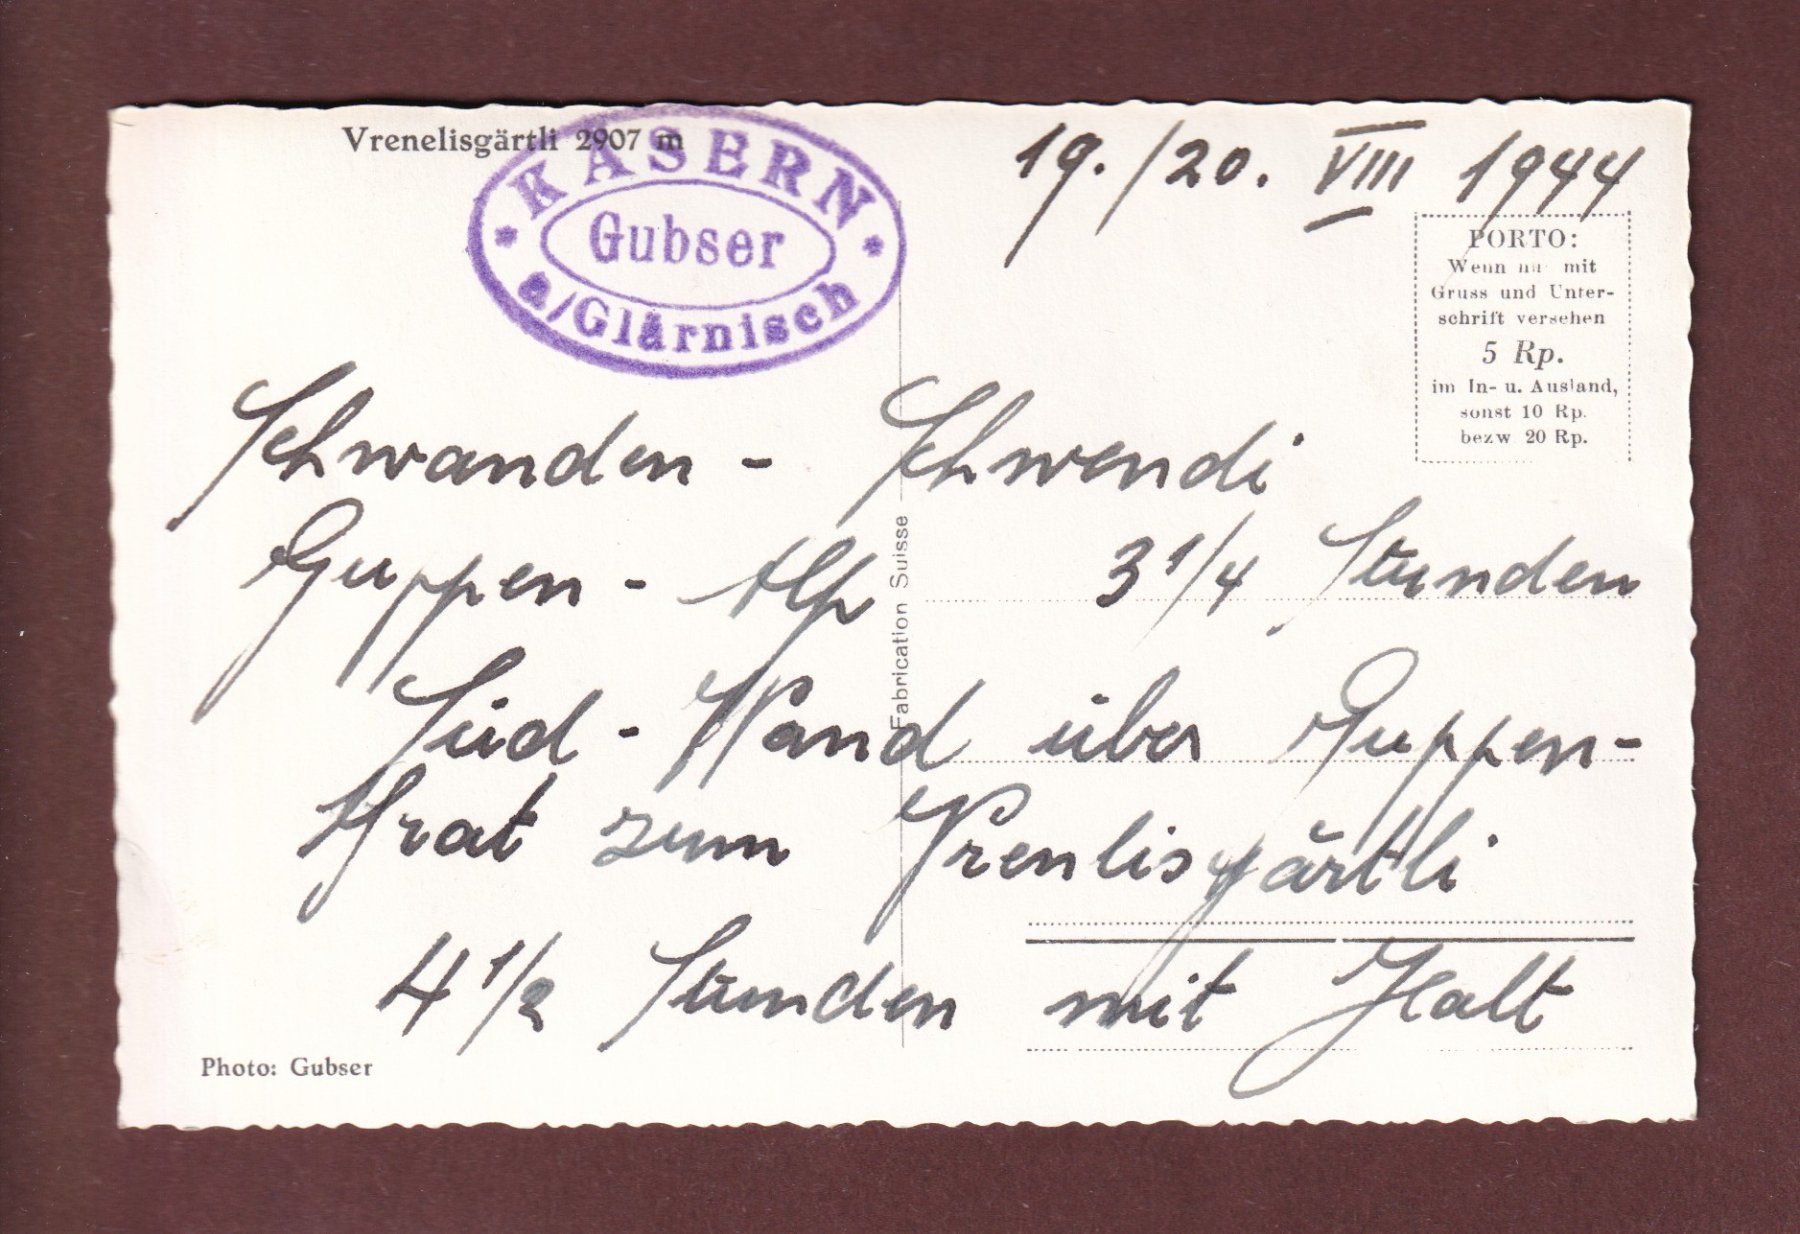 Vrenelisgärtli 2907 m
KÄSERN
Gubser
a/Glärnisch
19./20. VIII 1944
PORTO:
Wenn nur mit
Gruss und Unter-
schrift versehen
5 Rp.
im In- u. Ausland,
sonst 10 Rp.
bezw 20 Rp.
Schwanden - Schwendi
Guppen - Alp 3 1/4 Stunden
Süd - Wand über Guppen-
Grat zum Vrenlisgärtli
4 1/2 Stunden mit Halt
Fabrication Suisse
Photo: Gubser